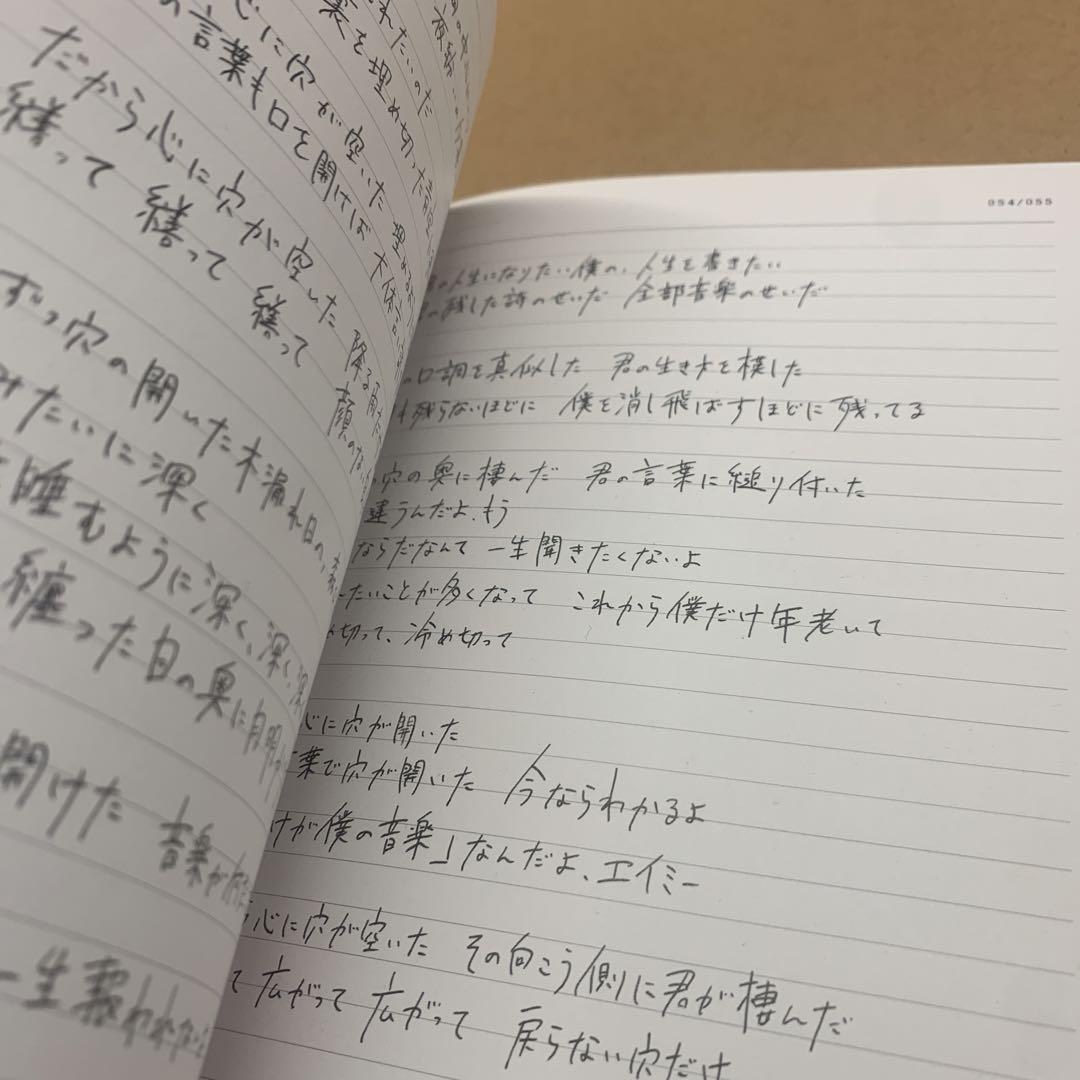 れたいのだ
を埋め切った
心に穴が空いた 埋
の言葉も口を開けば 大体
だから心に穴が空いた 降る
繕って 繕って 繕って 顔のない
ずつ穴の開いた木漏れ日の、
みたいに深く
睡むように深く、深く、深
纏った白の奥に
開けた 音楽が
一生
054/055
の人生になりたい僕の、人生を書きたい
の残した詩のせいだ 全部音楽のせいだ
の口調を真似した 君の生き方を模した
も残らないほどに 僕を消し飛ばすほどに残ってる
穴の奥に棲んだ 君の言葉に縋り付いた
違うんだよ、もう
ならだなんて 一生聞きたくないよ
たいことが多くなって これから僕だけ年老いて
め切って、冷め切って
心に穴が開いた
葉で穴が開いた 今ならわかるよ
けが僕の音楽」なんだよ、エイミー
心に穴が空いた その向こう側に君が棲んだ
て 広がって 広がって 戻らない穴だけ